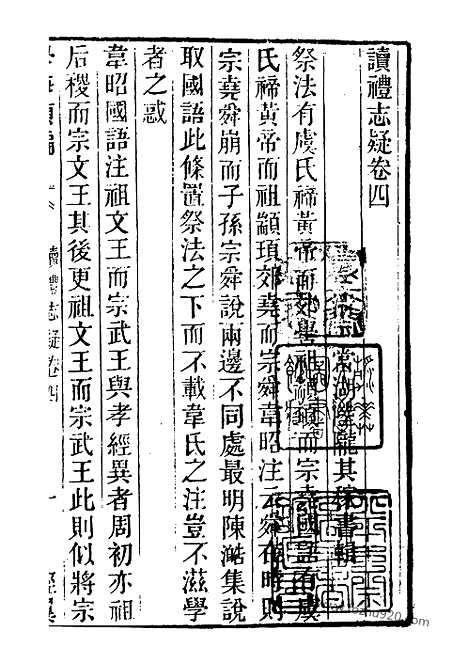 讀禮志疑卷四
當湖陸隴其稼書輯
祭法有虞氏禘黃帝而郊嚳祖顓頊而宗堯國語有虞
氏禘黃帝而祖顓頊郊堯而宗舜韋昭注云舜在時則
宗堯舜崩而子孫宗舜說兩邊不同處最明陳澔集說
取國語此條置祭法之下而不載韋氏之注豈不滋學
者之惑
韋昭國語注祖文王而宗武王與孝經異者周初亦祖
后稷而宗文王其後更祖文王而宗武王此則似將宗
讀禮志疑卷四
一
經翼